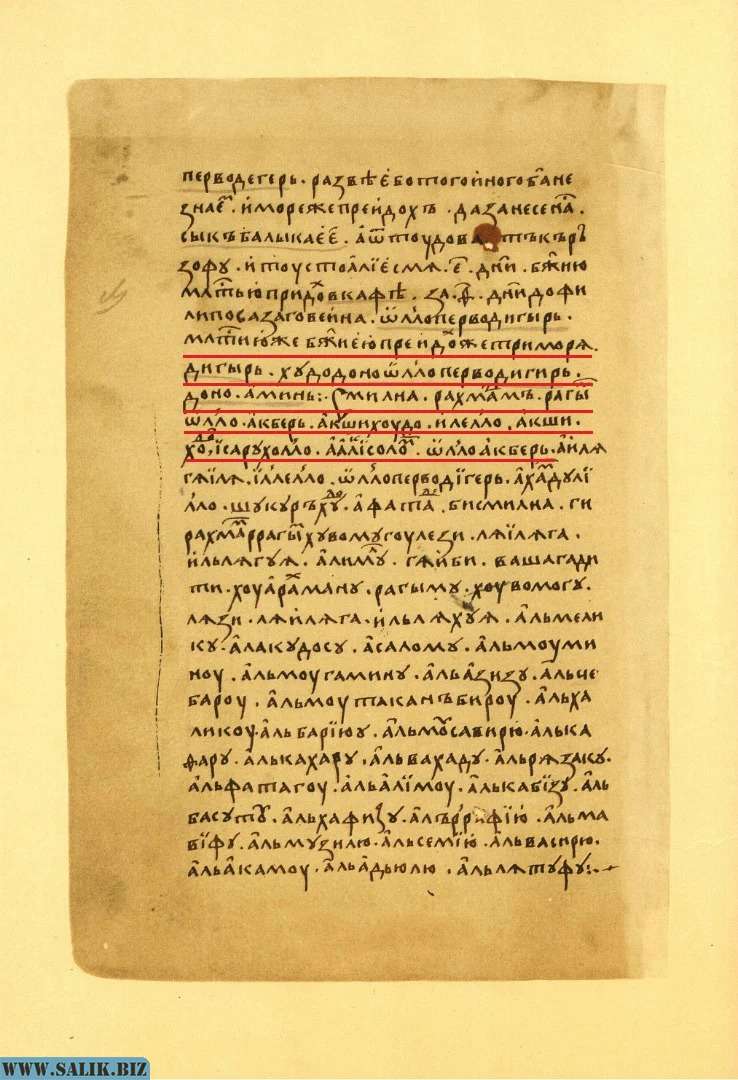 перводегерь · развѣѐботогоиногоб҃ане
знаеⷨ҇ · иморежепреидохъ · дазанесенⷭ҇ꙗ ·
сыкъбалыкаеѐ · аѿтоудова тъкъръ
зофу · итоустоꙗлиесмꙗ · е҃ · дн҃и · бж҃ию
млⷭ҇тьюпридⷯовкафѣ · за · ѳ҃ · дн҃идофи
липосазаговеина · ѿллоперводигырь ·
млⷭ҇тиюже бж҃иеюпреидⷯожетриморꙗ ·
дигырь · худодоноѿллоперводигирь ·
доно · аминь: · смилна · рахмⷨамъ · рагыⷨ
ѿлло · акберь · акшихоудо · илелло · акши ·
хⷣо · їсарухолло · аалїсолоⷨ · ѿллоакберь · аилꙗ
гꙗїлꙗ · їллелло · ѿллоперводїгерь · ахⷨадулї
лло · шукуръхуⷣо · афатаⷣ · бисмилна · ги
рахмⷨⷩаррагымхувомугоулези · лꙗїлꙗга ·
ильлꙗгуꙗ · алимⷧу · гꙗиби · вашагади
ти · хоуарⷯаману · рагыму · хоувомогу ·
лꙗзи · лꙗилꙗга · ильлꙗхуꙗ · альмели
ку · алакудосу · асалому · альмоуми
ноу · альмоугамину · альазизу · альче
бароу · альмоутаканъбироу · альха
ликоу · альбарїюу · альмоⷭусавирю · алька
фару · алькахару · альвахаду · альрꙗзаку ·
альфатагоу · альалїмоу · алькабїзу · аль
басутоⷭу · альхафизу · альррафїю · альма
вїфу · альмузилю · альсемїю · альвасирю ·
альакамоу · альадьюлю · альлꙗтуфу: · ~
WWW.SALIK.BIZ